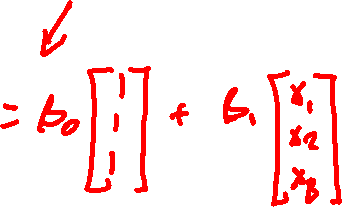 = b₀ [1 1 1] + b₁ [x₁ x₂ x₃]